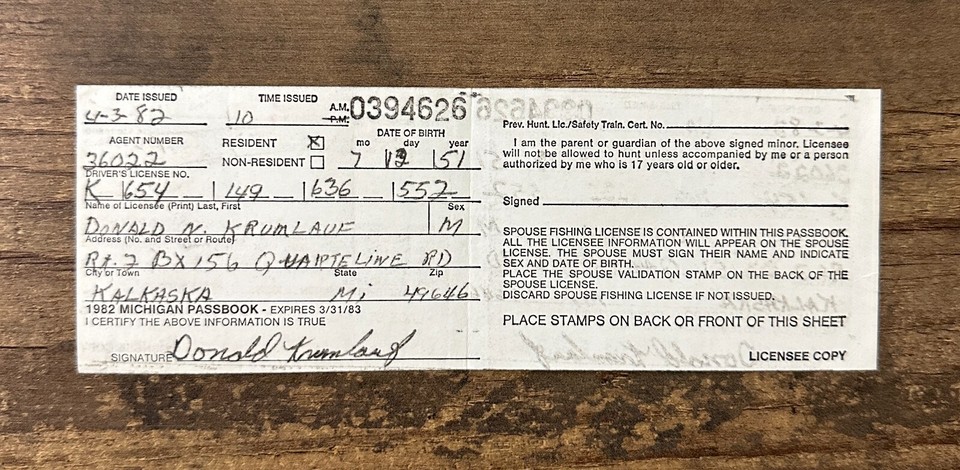 DATE ISSUED TIME ISSUED A.M. 0394626
4-3-82 10 P.M.
DATE OF BIRTH
AGENT NUMBER RESIDENT ☒ mo day year
36022 NON-RESIDENT ☐ 7 12 51
DRIVER'S LICENSE NO.
K 654 149 636 552
Name of Licensee (Print) Last, First Sex
DONALD N. KRUMLAUF M
Address (No. and Street or Route)
Rt. 2 BX 156 RD
City or Town State Zip
KALKASKA Mi 49646
1982 MICHIGAN PASSBOOK - EXPIRES 3/31/83
I CERTIFY THE ABOVE INFORMATION IS TRUE
SIGNATURE Donald Krumlauf
Prev. Hunt. Lic./Safety Train. Cert. No.
I am the parent or guardian of the above signed minor. Licensee
will not be allowed to hunt unless accompanied by me or a person
authorized by me who is 17 years old or older.
Signed
SPOUSE FISHING LICENSE IS CONTAINED WITHIN THIS PASSBOOK.
ALL THE LICENSEE INFORMATION WILL APPEAR ON THE SPOUSE
LICENSE. THE SPOUSE MUST SIGN THEIR NAME AND INDICATE
SEX AND DATE OF BIRTH.
PLACE THE SPOUSE VALIDATION STAMP ON THE BACK OF THE
SPOUSE LICENSE.
DISCARD SPOUSE FISHING LICENSE IF NOT ISSUED.
PLACE STAMPS ON BACK OR FRONT OF THIS SHEET
LICENSEE COPY